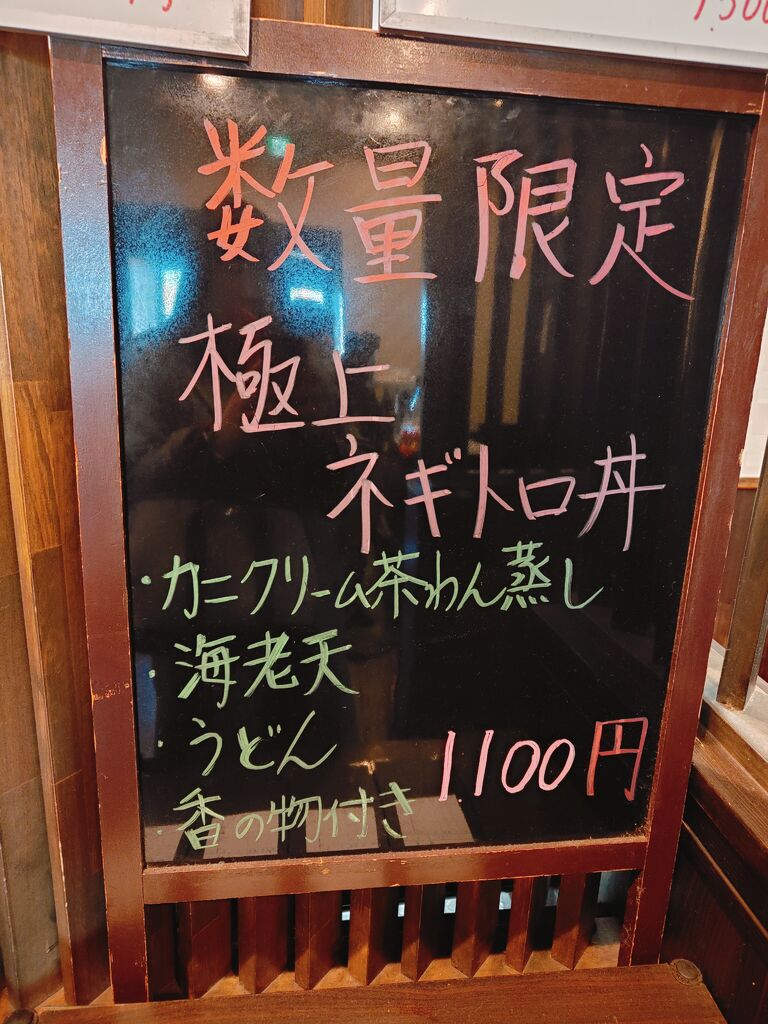 数量限定
極上
ネギトロ丼
・カニクリーム茶わん蒸し
・海老天
・うどん
・香の物付き
1100円